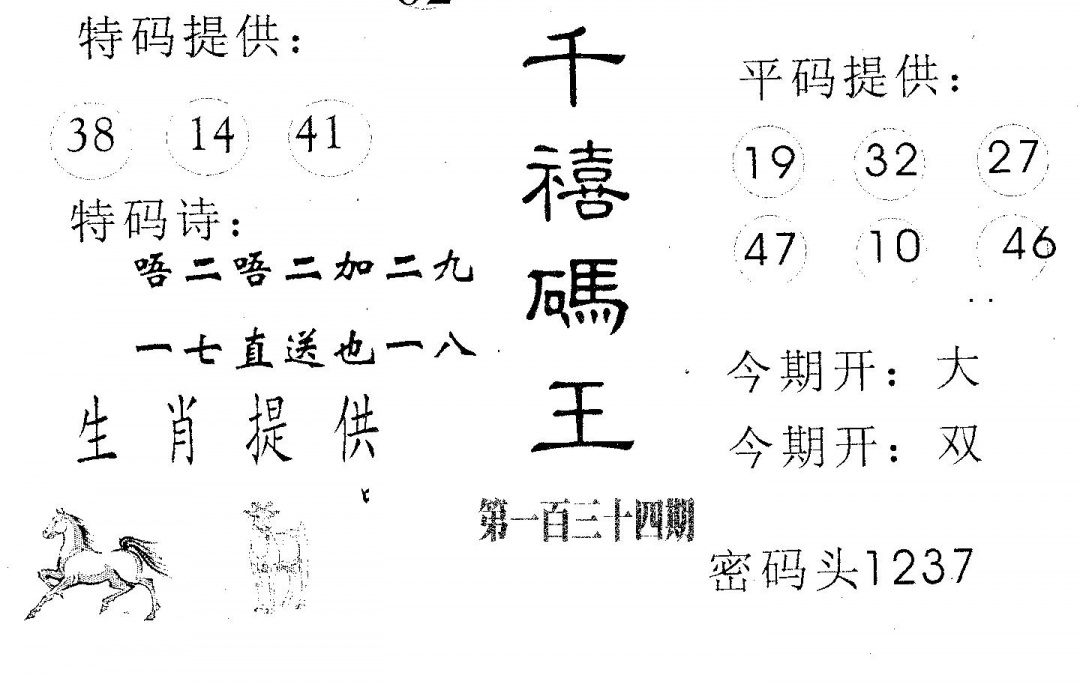 特码提供：
38 14 41
特码诗：
唔二唔二加二九
一七直送也一八
生肖提供
千禧碼王
第一百三十四期
平码提供：
19 32 27
47 10 46
今期开：大
今期开：双
密码头1237